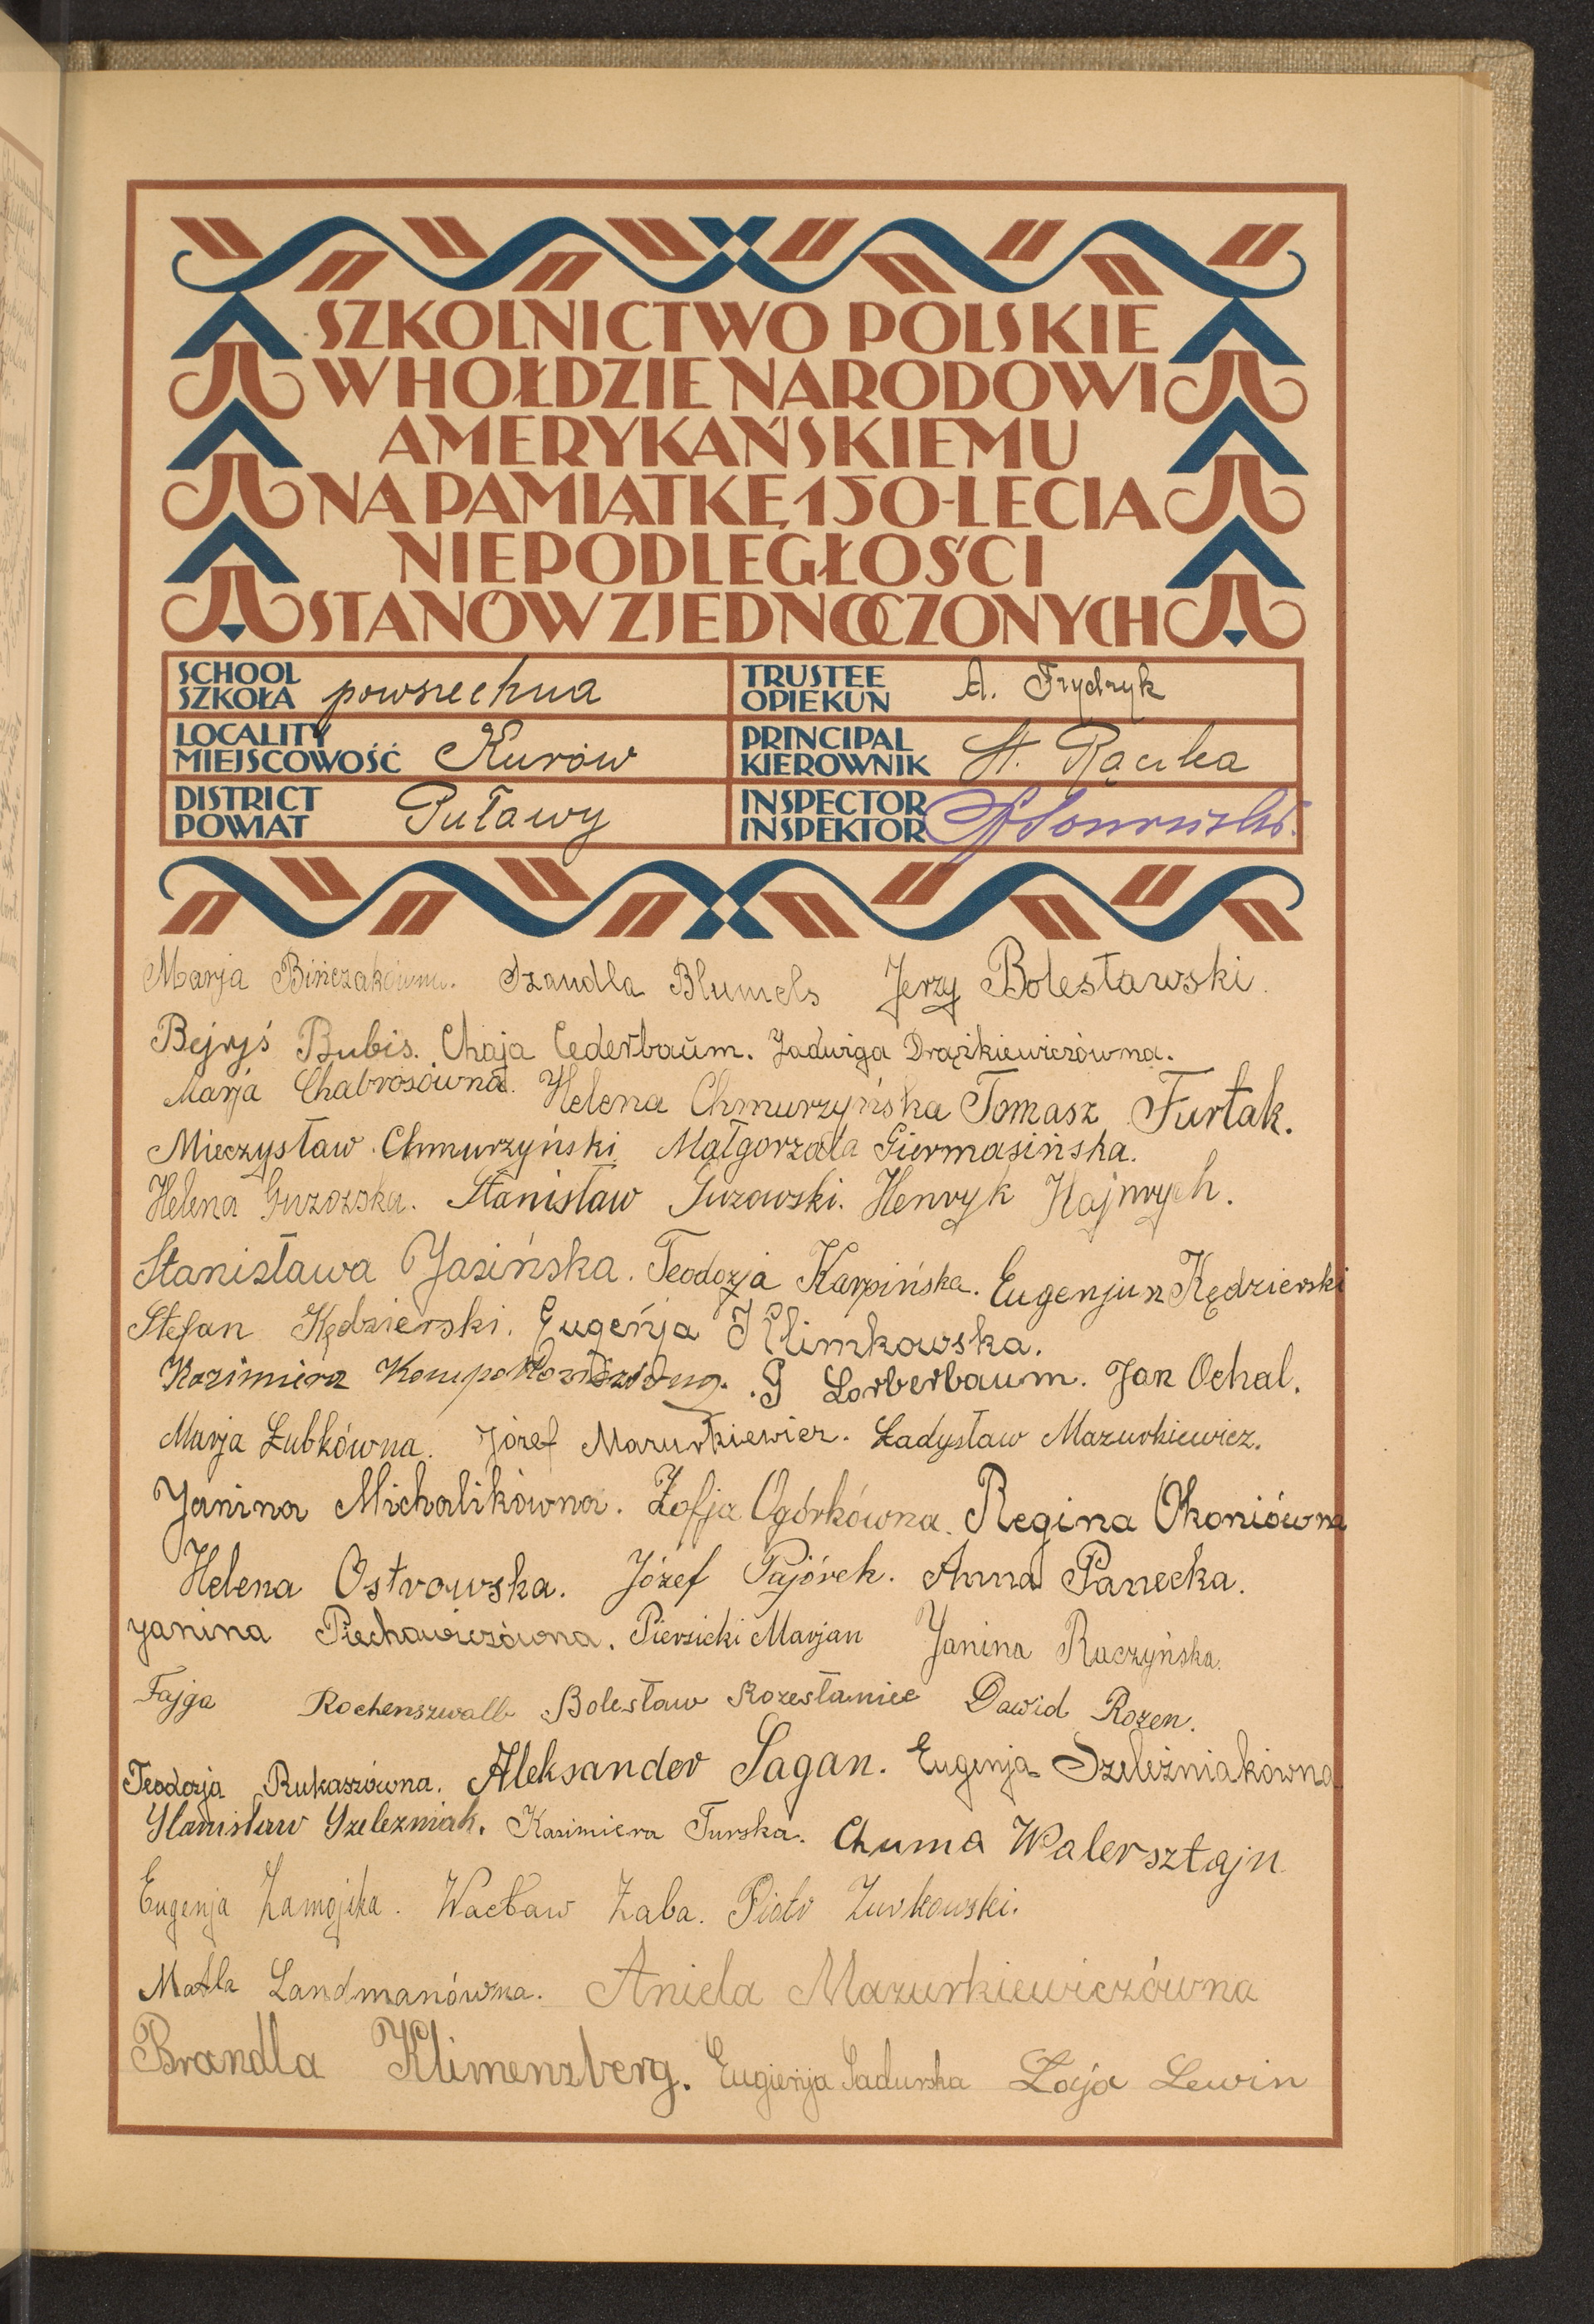 SZKOLNICTWO POLSKIE
W HOŁDZIE NARODOWI
AMERYKAŃSKIEMU
NA PAMIĄTKĘ 150-LECIA
NIEPODLEGŁOŚCI
STANÓW ZJEDNOCZONYCH
SCHOOL
SZKOŁA powszechna
TRUSTEE
OPIEKUN A. Frydryk
LOCALITY
MIEJSCOWOŚĆ Kurów
PRINCIPAL
KIEROWNIK St. Rączka
DISTRICT
POWIAT Puławy
INSPECTOR
INSPEKTOR
Marja Bińczakówna. Szandla Blumels Jerzy Bolesławski.
Bejryś Bubis. Chaja Cederbaum. Jadwiga Drążkiewiczówna.
Marja Chabrosówna. Helena Chmurzyńska Tomasz Furtak.
Mieczysław Chmurzyński Małgorzata Giermasińska.
Helena Guzowska. Stanisław Guzowski. Henryk Hajnrych.
Stanisława Jasińska. Teodozja Karpińska. Eugenjusz Kędzierski
Stefan Kędzierski. Eugenja Klimkowska.
Kazimiera .G Lorberbaum. Jan Ochal.
Marja Łubkówna. Józef Mazurkiewicz. Ładysław Mazurkiewicz.
Janina Michalikówna. Zofja Ogórkówna. Regina Okoniówna
Helena Ostrowska. Józef Pajórek. Anna Panecka.
Janina Piechowiczówna. Piersicki Marjan Janina Raczyńska.
Fajga Rochenszwalb Bolesław Rozesłaniec Dawid Rozen.
Teodozja Rukaszówna. Aleksander Sagan. Eugenja Szeleźniakówna
Stanisław Szelezniak. Kazimiera Turska. Chuma Walersztajn
Eugenja Zamojska. Wacław Żaba. Piotr Żurkowski.
Matla Landmanówna. Aniela Mazurkiewiczówna
Brandla Klimenzberg. Eugienja Sadurska Łaja Lewin